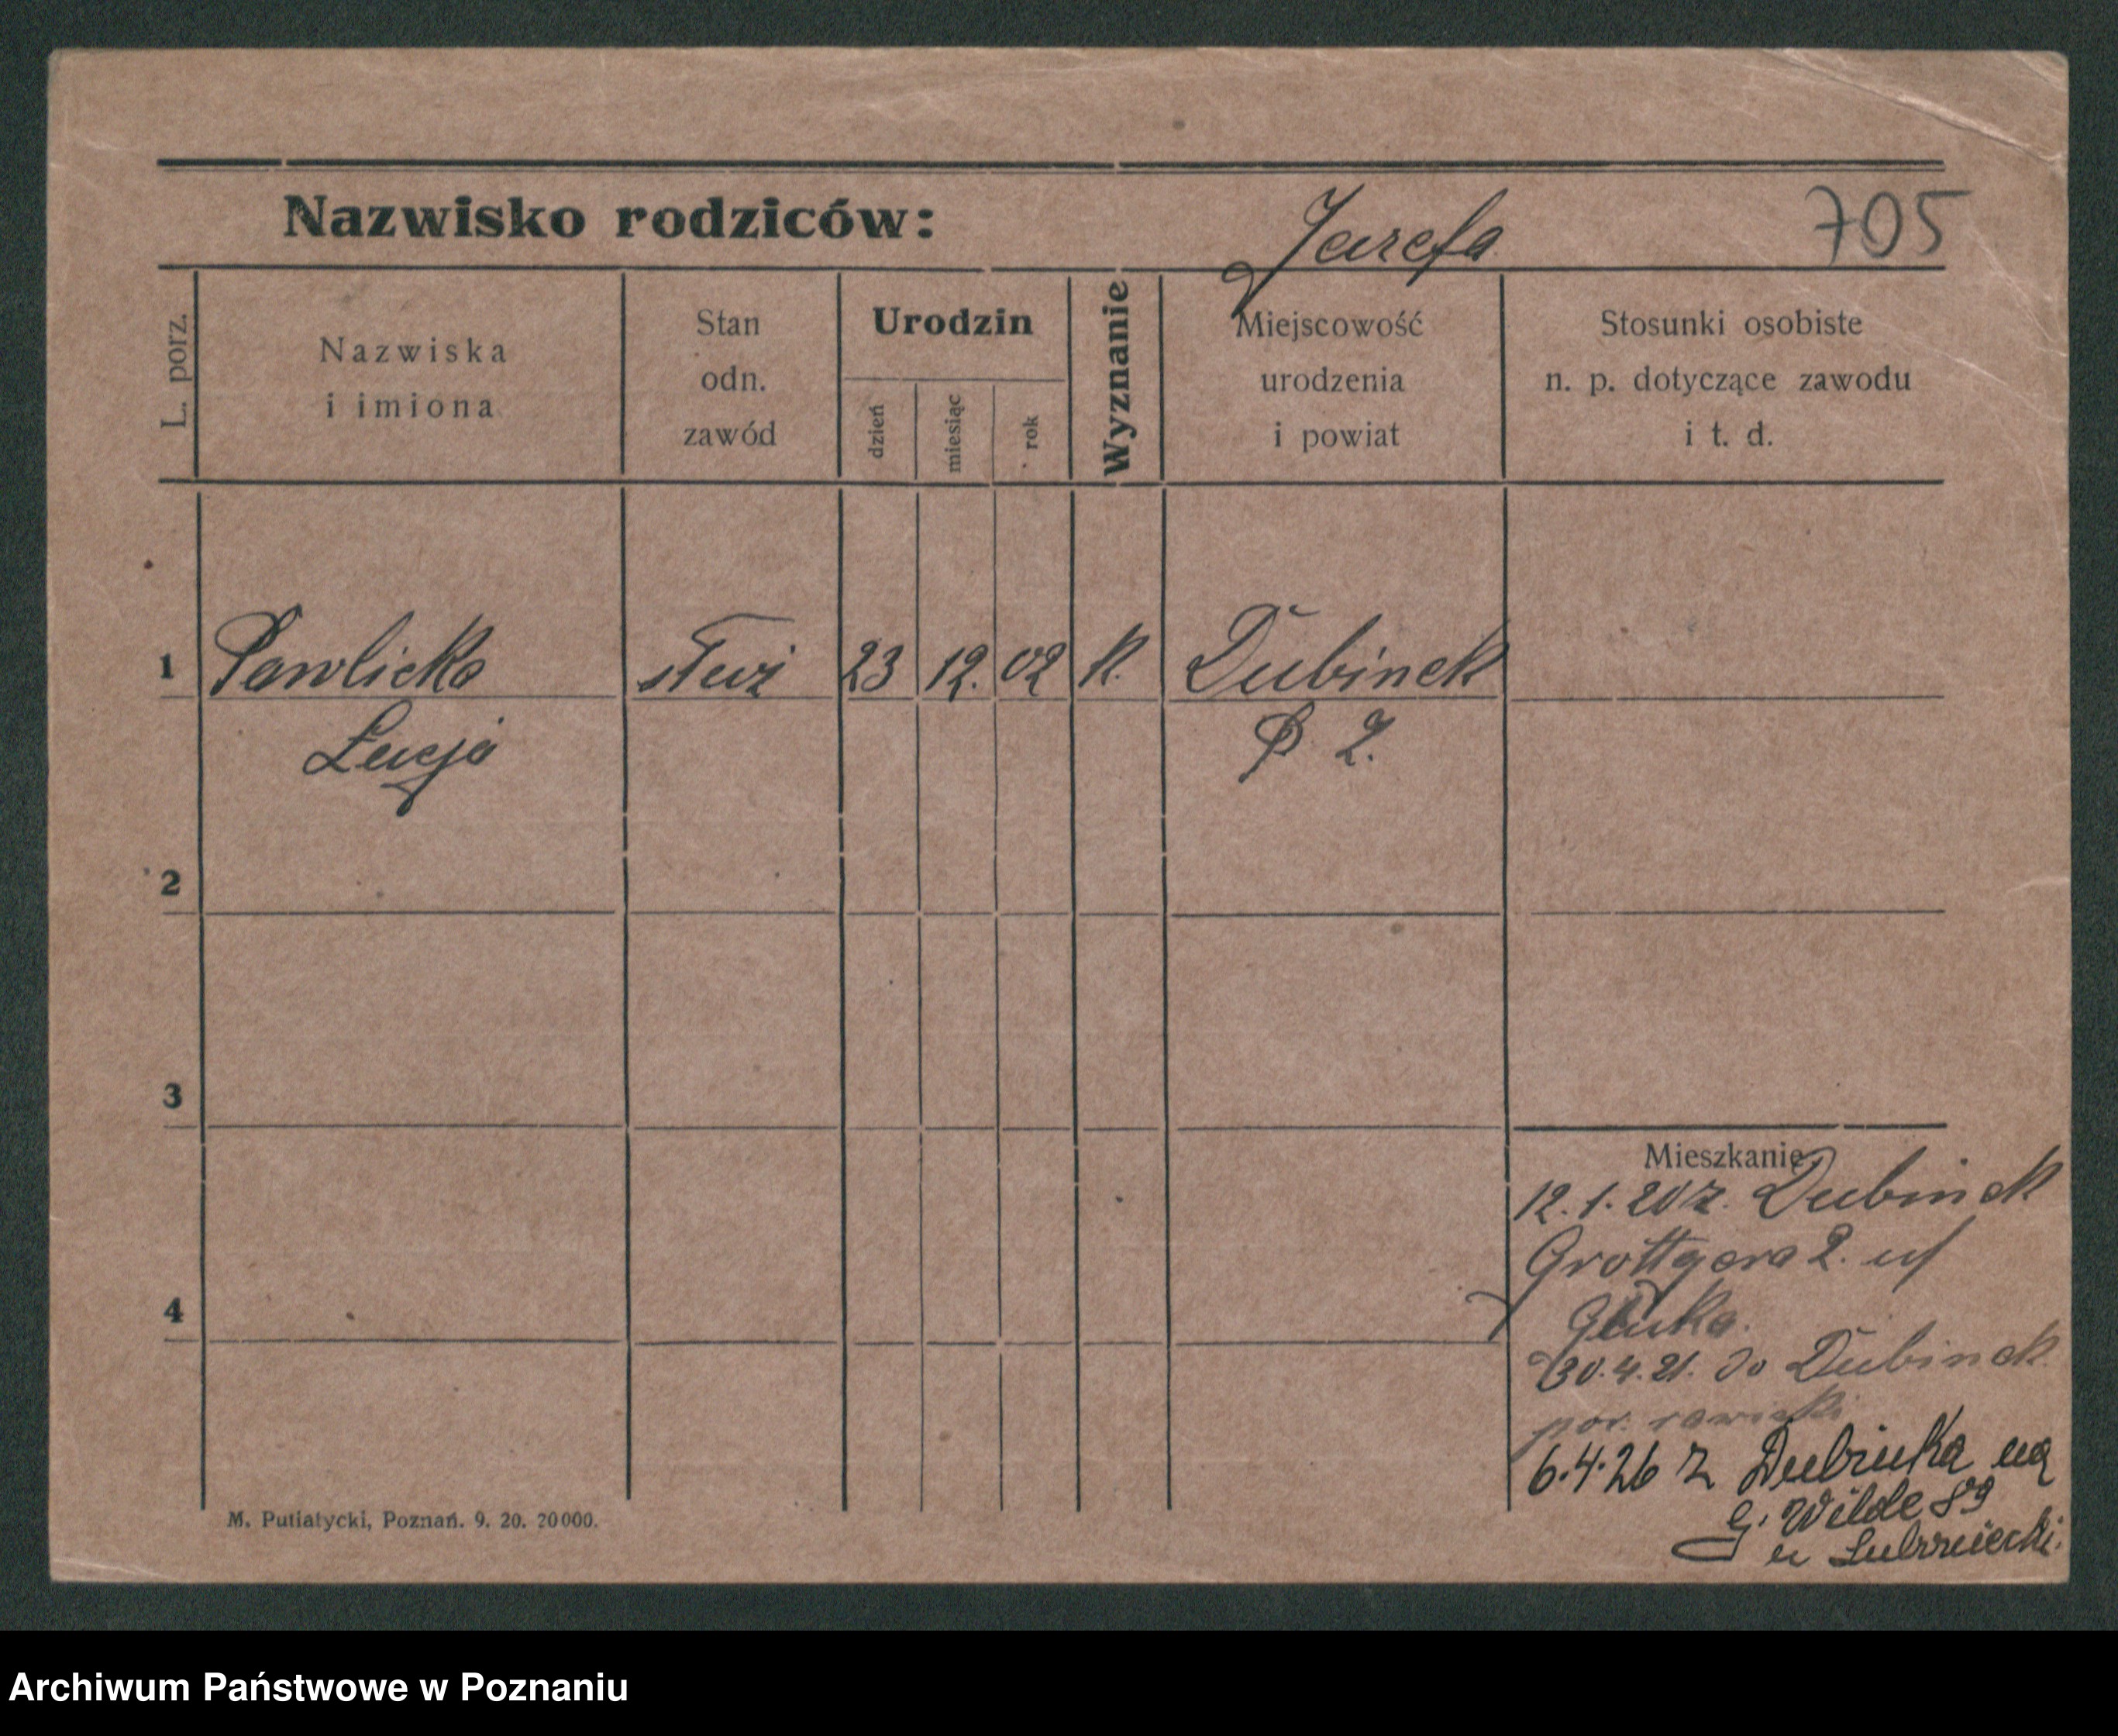 Nazwisko rodziców: Józefa 705
L. porz.
Nazwiska
i imiona
Stan
odn.
zawód
Urodzin
dzień
miesiąc
rok
Wyznanie
Miejscowość
urodzenia
i powiat
Stosunki osobiste
n. p. dotyczące zawodu
i t. d.
1 Pawlicka służ 23 12. 02 k. Dubinek
Łucja
2
3
4
Mieszkanie
12.1.20 z. Dubinek
Grottgera 2. u
30.4.21. do Dubinek
pow. rawicki
6.4.26 z Dubinka na
G. Wilde 89
u
M. Putiatycki, Poznań. 9. 20. 20000.
Archiwum Państwowe w Poznaniu